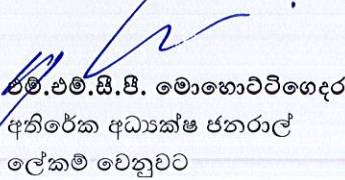 එම්.එම්.සී.පී. මොහොට්ටිගෙදර
අතිරේක අධ්‍යක්ෂ ජනරාල්
ලේකම් වෙනුවට